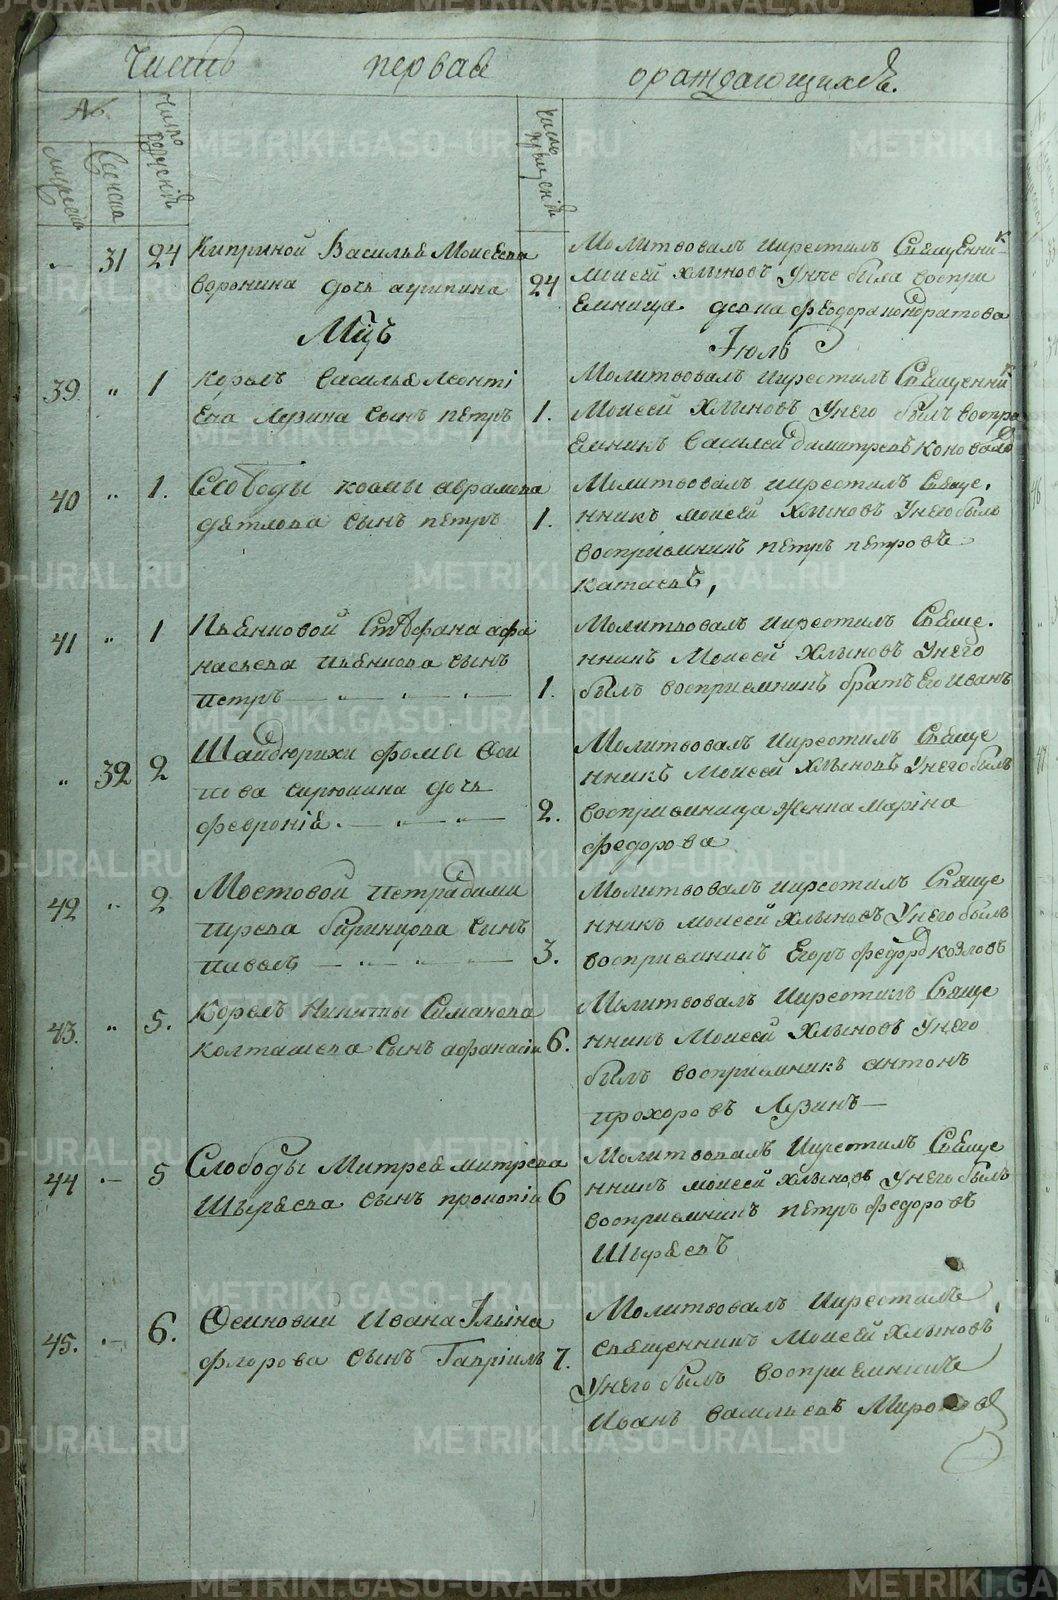 Часть первая ораждающихсѣ.
№.
мужеска
женска
число рождениѣ
число крещениѣ
31 24 Киприной Василья Моисеева
Воронина дочь агрипина 24
Молитвовалъ икрестилъ Священник
Моисей Хлыновъ Унее была воспри
Емница девка Феодора кондратова
Мцъ Июль
39 " 1 Корелъ василья Леонти
Ева Лузина сынъ петръ 1.
Молитвовалъ икрестилъ Священник
Моисей Хлыновъ Унего былъ воспри
Емникъ Василей дмитревъ Коновалов
40 " 1. Слободы козмы аврамова
детлова сынъ петръ 1.
Молитвовалъ икрестилъ Свеще.
нникъ Моисей Хлыновъ Унего было
восприемникъ петръ петровъ
катаевъ,
41 " 1 Ивенковой Стефана афа
насьева ивенкова сынъ
петръ — " — " — " — 1.
Молитвовалъ икрестилъ Свеще.
нникъ Моисей Хлыновъ Унего
былъ восприемникъ братъ Его Иванъ
" 32 2 Шайдюрихи фомы Еси
пова сирюкина дочь
феврониѣ. — " — " — 2.
Молитвовалъ икрестилъ Свеще
нникъ Моисей Хлыновъ Унего былъ
восприемница женка Марина
федорова
42 " 2 Мостовой петра дими
триева сынъ
павелъ — " — " — 3.
Молитвовалъ икрестилъ Свяще
нникъ Моисей Хлыновъ Унего былъ
восприемникъ Егоръ федоров козловъ
43. " 5. Корелъ Никиты Симанова
колташева сынъ афанасии 6.
Молитвовалъ икрестилъ Свяще
нникъ Моисей Хлыновъ Унего
былъ восприемникъ антонъ
прохоровъ Лузинъ —
44 5 Слободы Митрея митрева
Шырьева сынъ прокопии 6
Молитвовалъ икрестилъ Свеще
нникъ Моисей Хлыновъ Унего былъ
восприемникъ петръ федоровъ
Шырьевъ
45. 6. Осиновки Ивана Ильина
флорова сынъ Гавриилъ 7.
Молитвовалъ икрестилъ
священникъ Моисей Хлыновъ
Унего былъ восприемникъ
Иванъ васильевъ Миронов
METRIKI.GASO-URAL.RU